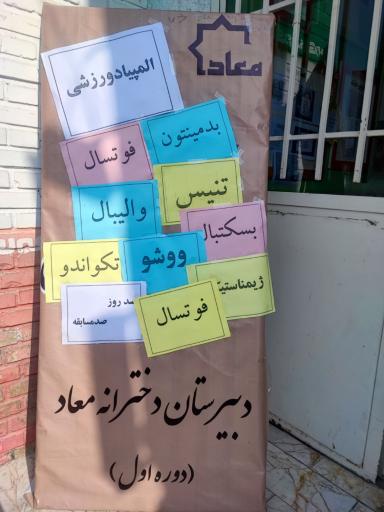 معاد
المپیاد ورزشی
بدمینتون
فوتسال
تنیس
والیبال
بسکتبال
ووشو
تکواندو
ژیمناستیک
صد روز
صد مسابقه
فوتسال
دبیرستان دخترانه معاد
(دوره اول)